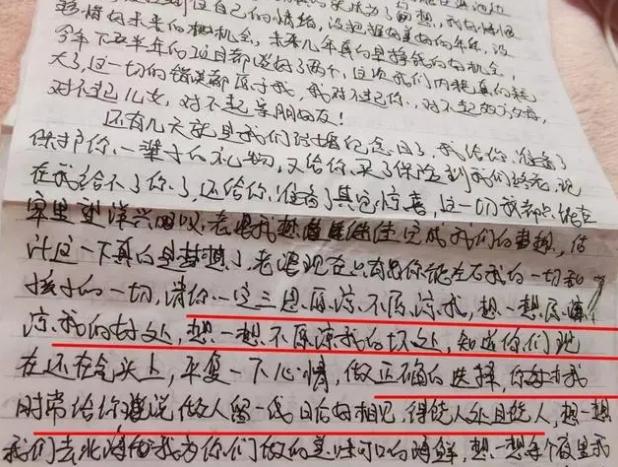 到位自己的情绪,没把
好未来的机会,未来几年真的是挣钱的好机会,
今年下半年的项目都谈好了两个,这次我们内耗真的耗
大了,这一切的错误都属于我,我对不起你,对不起双方父母,
对不起儿女,对不起亲朋好友!
还有几天就是我们结婚纪念日了,我给你准备了
你一辈子的礼物,又给你买了保险到我们终老,现
在我给不了你了,还给你准备了其它惊喜,这一切我都只能在
家里望洋兴叹,老婆我想继续完成我们的梦想,估
计这一下真的是梦想了,老婆现在只有你能左右我的一切和
孩子的一切,请你一定三思,原谅不原谅我,想一想原谅
谅我的好处,想一想不原谅我的坏处,知道你们现
在还在气头上,平复一下心情,做正确的选择,你对我
时常给你说,做人留一线日后好相见,得饶人处且饶人,想一想
我们去北海我为你们做的美味可口的海鲜,想一想每个夜里我